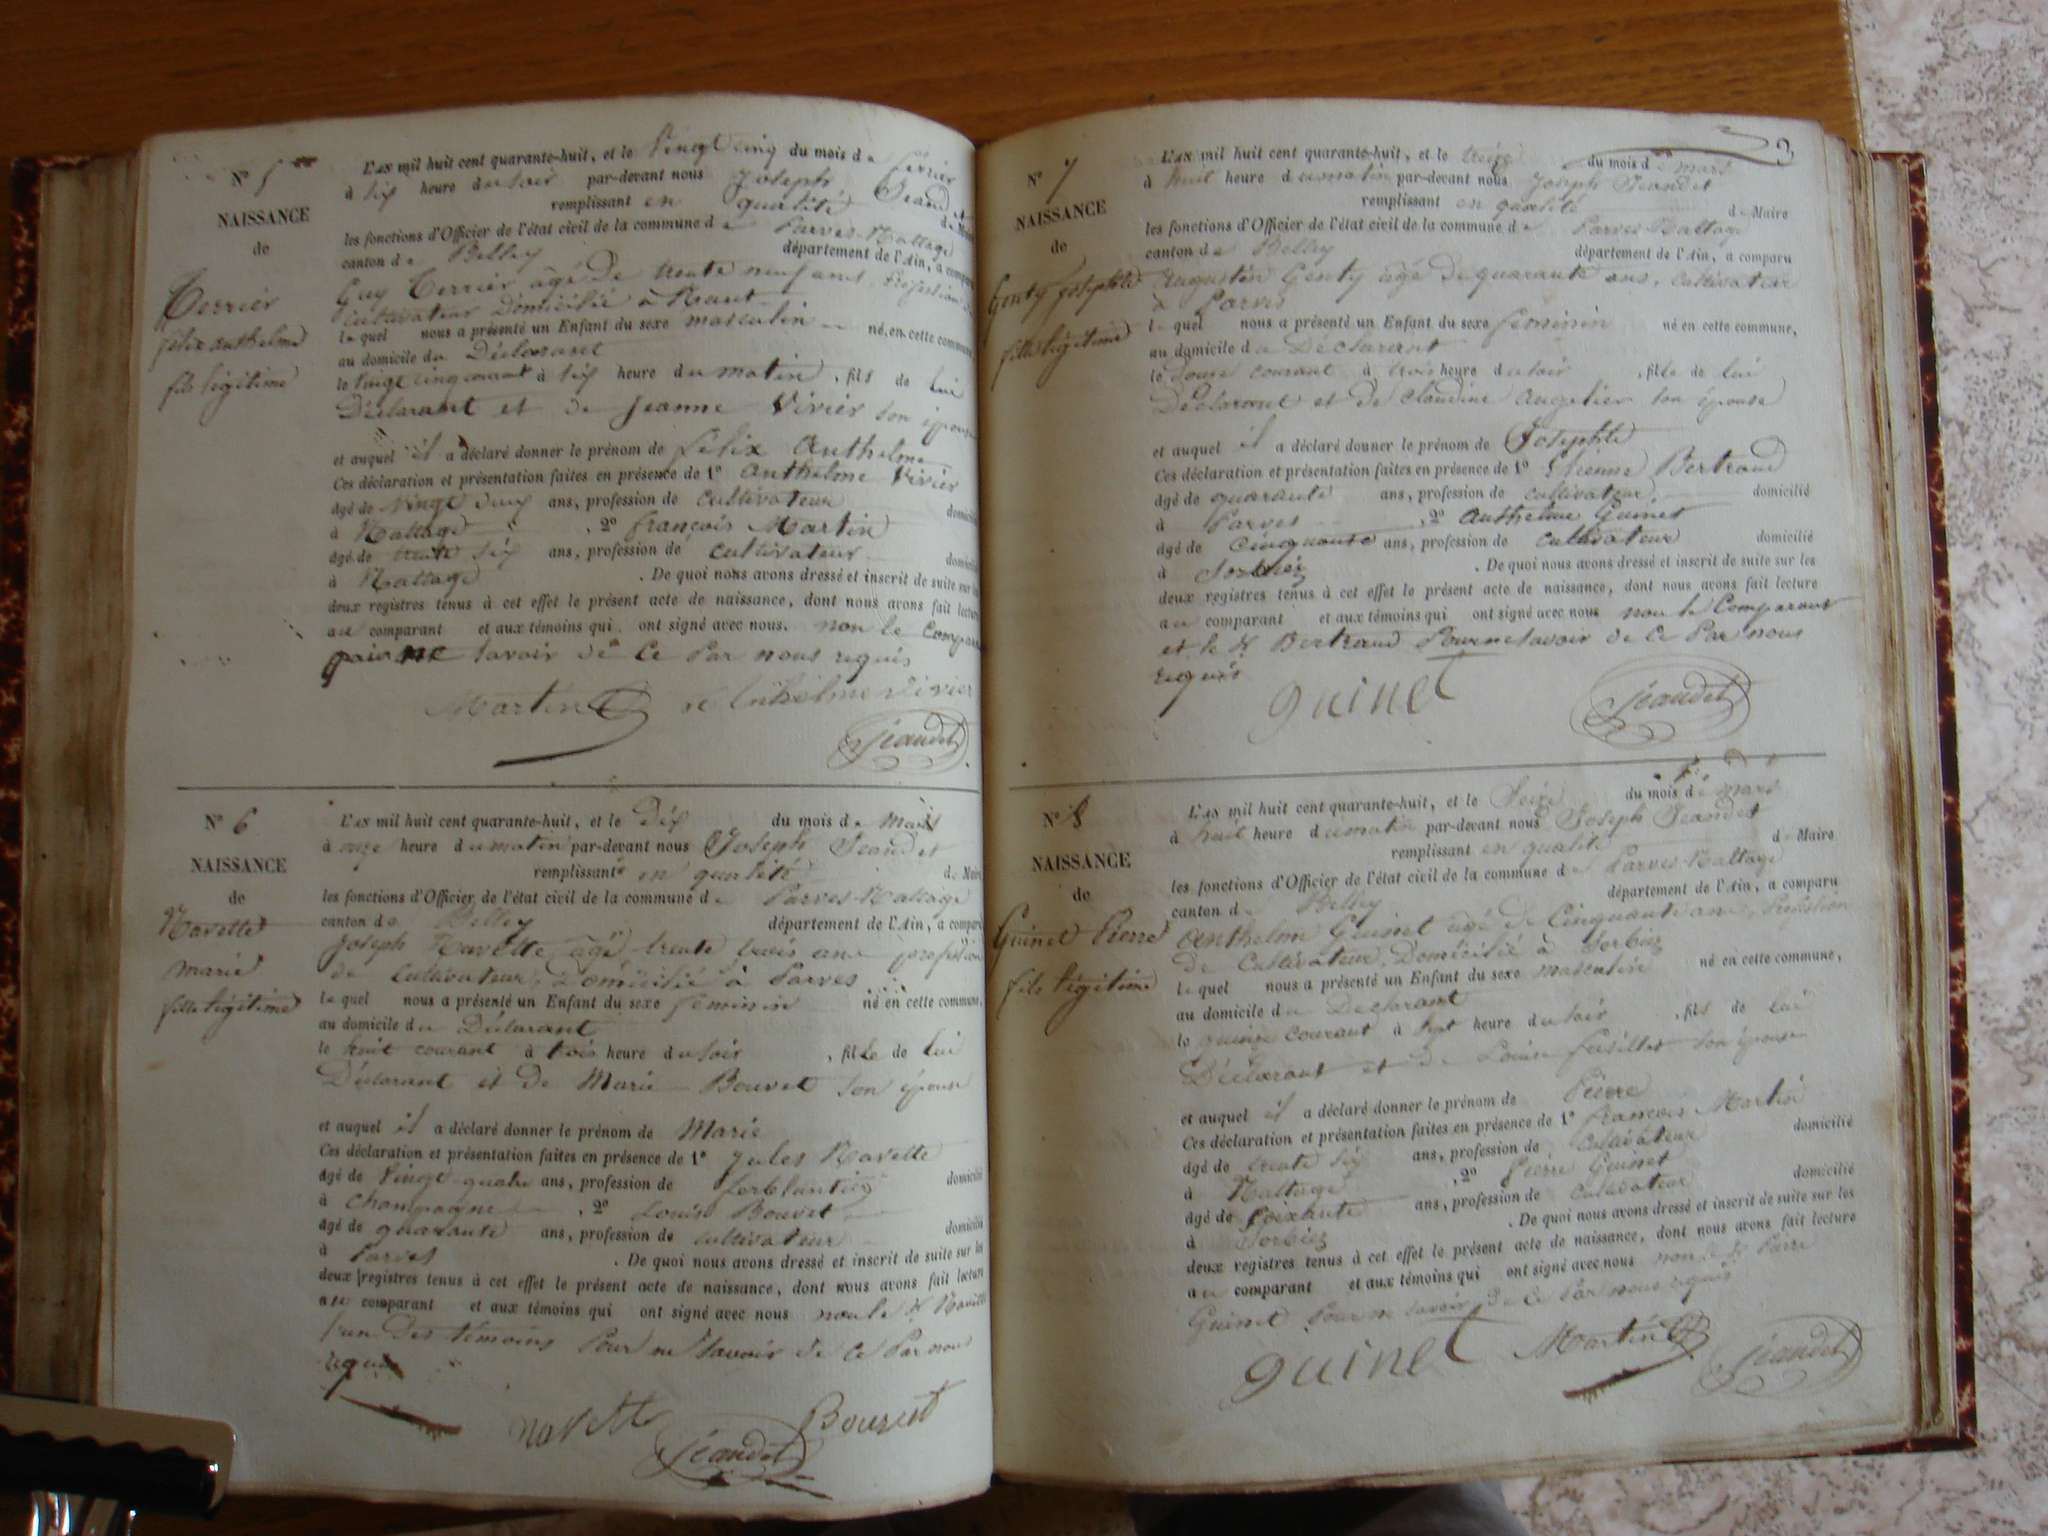 N° 5
NAISSANCE
de
Terrier
félix anthelme
fils légitime
L'AN mil huit cent quarante-huit, et le Vingt cinq du mois de février
à six heure du soir par-devant nous Joseph Jeandet
remplissant en qualité de Maire
les fonctions d'Officier de l'état civil de la commune de Parves-Nattage
canton de Belley département de l'Ain, a comparu
Guy Terrier âgé de trente neuf ans, Profession de
cultivateur Domicilié à
lequel nous a présenté un Enfant du sexe masculin né, en cette commune,
au domicile du Déclarant
le vingt cinq courant à six heure du matin, fils de lui
Déclarant et de Jeanne Vivier son épouse
et auquel il a déclaré donner le prénom de Félix Anthelme
Ces déclaration et présentation faites en présence de 1° Anthelme Vivier
âgé de vingt deux ans, profession de cultivateur domicilié
à Nattage, 2° françois Martin
âgé de trente six ans, profession de cultivateur domicilié
à Nattage. De quoi nous avons dressé et inscrit de suite sur les
deux registres tenus à cet effet le présent acte de naissance, dont nous avons fait lecture
au comparant et aux témoins qui ont signé avec nous. non le Comparant
savoir de Ce Par nous requis
Martin Anthelme Vivier
Jeandet
N° 6
NAISSANCE
de
Navette
marie
fille légitime
L'AN mil huit cent quarante-huit, et le Dix du mois de Mars
à onze heure du matin par-devant nous Joseph Jeandet
remplissant en qualité de Maire
les fonctions d'Officier de l'état civil de la commune de Parves-Nattage
canton de Belley département de l'Ain, a comparu
Joseph Navette âgé trente trois ans profession
de cultivateur, Domicilié à Parves
lequel nous a présenté un Enfant du sexe féminin né en cette commune,
au domicile du Déclarant
le huit courant à trois heure du soir, fille de lui
Déclarant et de Marie Bouvet son épouse
et auquel il a déclaré donner le prénom de Marie
Ces déclaration et présentation faites en présence de 1° Jules Navette
âgé de Vingt quatre ans, profession de ferblantier domicilié
à Champagne, 2° Louis Bouvet
âgé de quarante ans, profession de cultivateur domicilié
à Parves. De quoi nous avons dressé et inscrit de suite sur les
deux registres tenus à cet effet le présent acte de naissance, dont nous avons fait lecture
au comparant et aux témoins qui ont signé avec nous non le Sr Navette
l'un des témoins Pour ne Savoir de Ce Par nous
requis
navette Bouvet
Jeandet
3
N° 7
NAISSANCE
de
Genty Josephte
fille légitime
L'AN mil huit cent quarante-huit, et le treize du mois de mars
à huit heure du matin par-devant nous Joseph Jeandet
remplissant en qualité de Maire
les fonctions d'Officier de l'état civil de la commune de Parves-Nattage
canton de Belley département de l'Ain, a comparu
Augustin Genty âgé de quarante ans, cultivateur
à Parves
lequel nous a présenté un Enfant du sexe féminin né en cette commune,
au domicile du Déclarant
le douze courant à trois heure du soir, fille de lui
Déclarant et de Claudine Augelier son épouse
et auquel il a déclaré donner le prénom de Josephte
Ces déclaration et présentation faites en présence de 1° Etienne Bertrand
âgé de quarante ans, profession de cultivateur domicilié
à Parves, 2° Anthelme Guinet
âgé de Cinquante ans, profession de cultivateur domicilié
à Sorbiez. De quoi nous avons dressé et inscrit de suite sur les
deux registres tenus à cet effet le présent acte de naissance, dont nous avons fait lecture
au comparant et aux témoins qui ont signé avec nous non le Comparant
et le Sr Bertrand Pour ne savoir de Ce Par nous
requis
guinet Jeandet
N° 8
NAISSANCE
de
Guinet Pierre
fils légitime
L'AN mil huit cent quarante-huit, et le Seize du mois de mars
à huit heure du matin par-devant nous Joseph Jeandet
remplissant en qualité de Maire
les fonctions d'Officier de l'état civil de la commune de Parves-Nattage
canton de Belley département de l'Ain, a comparu
Anthelme Guinet âgé de Cinquante ans, Profession
de Cultivateur, Domicilié à Sorbiez
lequel nous a présenté un Enfant du sexe masculin né en cette commune,
au domicile du Déclarant
le quinze courant à sept heure du soir, fils de lui
Déclarant et de Louise son épouse
et auquel il a déclaré donner le prénom de Pierre
Ces déclaration et présentation faites en présence de 1° françois Martin
âgé de trente six ans, profession de cultivateur domicilié
à Nattage, 2° Pierre Guinet
âgé de Soixante ans, profession de cultivateur domicilié
à Sorbiez. De quoi nous avons dressé et inscrit de suite sur les
deux registres tenus à cet effet le présent acte de naissance, dont nous avons fait lecture
au comparant et aux témoins qui ont signé avec nous non le Sr Pierre
Guinet Pour ne savoir de ce Par nous requis
guinet Martin Jeandet